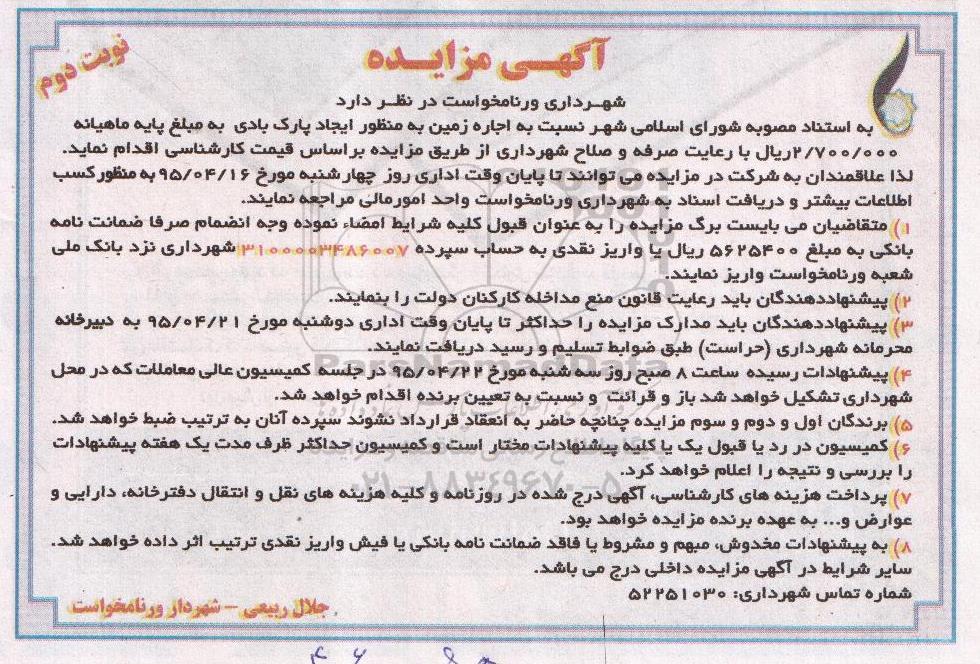 آگهـی مزایـده
نوبت دوم
شهـرداری ورنامخواست در نظـر دارد
به استناد مصوبه شورای اسلامی شهـر نسبت به اجاره زمین به منظور ایجاد پارک بادی به مبلغ پایه ماهیانه
۲/۷۰۰/۰۰۰ریال با رعایت صرفه و صلاح شهرداری از طریق مزایده براساس قیمت کارشناسی اقدام نماید.
لذا علاقمندان به شرکت در مزایده می توانند تا پایان وقت اداری روز چهارشنبه مورخ ۹۵/۰۴/۱۶ به منظور کسب
اطلاعات بیشتر و دریافت اسناد به شهرداری ورنامخواست واحد امورمالی مراجعه نمایند.
۱) متقاضیان می بایست برگ مزایده را به عنوان قبول کلیه شرایط امضاء نموده وجه انضمام صرفا ضمانت نامه
بانکی به مبلغ ۵۶۲۵۴۰۰ ریال یا واریز نقدی به حساب سپرده ۳۱۰۰۰۰۳۴۸۶۰۰۷ شهرداری نزد بانک ملی
شعبه ورنامخواست واریز نمایند.
۲) پیشنهاددهندگان باید رعایت قانون منع مداخله کارکنان دولت را بنمایند.
۳) پیشنهاددهندگان باید مدارک مزایده را حداکثر تا پایان وقت اداری دوشنبه مورخ ۹۵/۰۴/۲۱ به دبیرخانه
محرمانه شهرداری (حراست) طبق ضوابط تسلیم و رسید دریافت نمایند.
۴) پیشنهادات رسیده ساعت ۸ صبح روز سه شنبه مورخ ۹۵/۰۴/۲۲ در جلسه کمیسیون عالی معاملات که در محل
شهرداری تشکیل خواهد شد باز و قرائت و نسبت به تعیین برنده اقدام خواهد شد.
۵) برندگان اول و دوم و سوم مزایده چنانچه حاضر به انعقاد قرارداد نشوند سپرده آنان به ترتیب ضبط خواهد شد.
۶) کمیسیون در رد یا قبول یک یا کلیه پیشنهادات مختار است و کمیسیون حداکثر ظرف مدت یک هفته پیشنهادات
را بررسی و نتیجه را اعلام خواهد کرد.
۷) پرداخت هزینه های کارشناسی، آگهی درج شده در روزنامه و کلیه هزینه های نقل و انتقال دفترخانه، دارایی و
عوارض و... به عهده برنده مزایده خواهد بود.
۸) به پیشنهادات مخدوش، مبهم و مشروط یا فاقد ضمانت نامه بانکی یا فیش واریز نقدی ترتیب اثر داده خواهد شد.
سایر شرایط در آگهی مزایده داخلی درج می باشد.
شماره تماس شهرداری: ۵۲۲۵۱۰۳۰
جلال ربیعی – شهردار ورنامخواست
ParsNamadData
۰۲۱-۸۸۳۴۹۶۷۰-۵